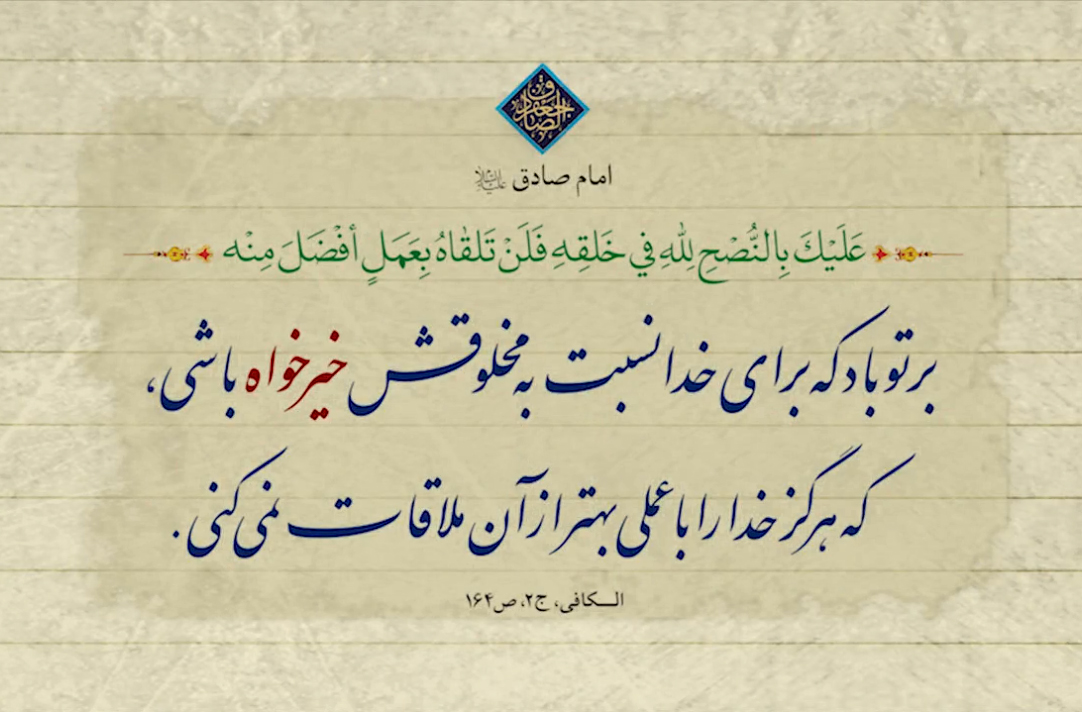 جعفر الصادق
امام صادق علیه‌السلام
عَلَيْكَ بِالنُّصْحِ لِلّٰهِ فِي خَلقِهِ فَلَنْ تَلقاهُ بِعَمَلٍ أفْضَلَ مِنْه
بر تو باد که برای خدا نسبت به مخلوقش خیرخواه باشی،
که هرگز خدا را با عملی بهتر از آن ملاقات نمی‌کنی.
الـکافی، ج۲، ص۱۶۴